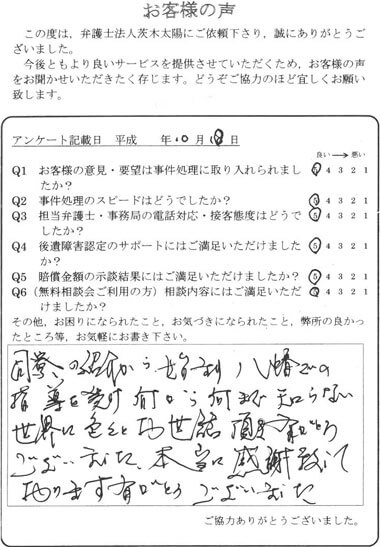 お客様の声
この度は，弁護士法人茨木太陽にご依頼下さり，誠にありがとうご
ざいました。
今後ともより良いサービスを提供させていただくため，お客様の声
をお聞かせいただきたく存じます。どうぞご協力のほど宜しくお願い
致します。
アンケート記載日 平成 年10月18日
良い→悪い
Q1 お客様の意見・要望は事件処理に取り入れられまし 5 4 3 2 1
たか？
Q2 事件処理のスピードはどうでしたか？ 5 4 3 2 1
Q3 担当弁護士・事務局の電話対応・接客態度はどうで 5 4 3 2 1
したか？
Q4 後遺障害認定のサポートにはご満足いただけました 5 4 3 2 1
か？
Q5 賠償金額の示談結果にはご満足いただけましたか？ 5 4 3 2 1
Q6（無料相談会ご利用の方）相談内容にはご満足いただ 5 4 3 2 1
けましたか？
その他，お困りになられたこと，お気づきになられたこと，弊所の良かっ
たところ等，お気軽にお書き下さい。
の紹介から始まり 八幡での
指導を受け 何から何まで知らない
世界に色々とお世話頂き有がとう
ございました、本当に感謝致して
おります有がとうございました
ご協力ありがとうございました。